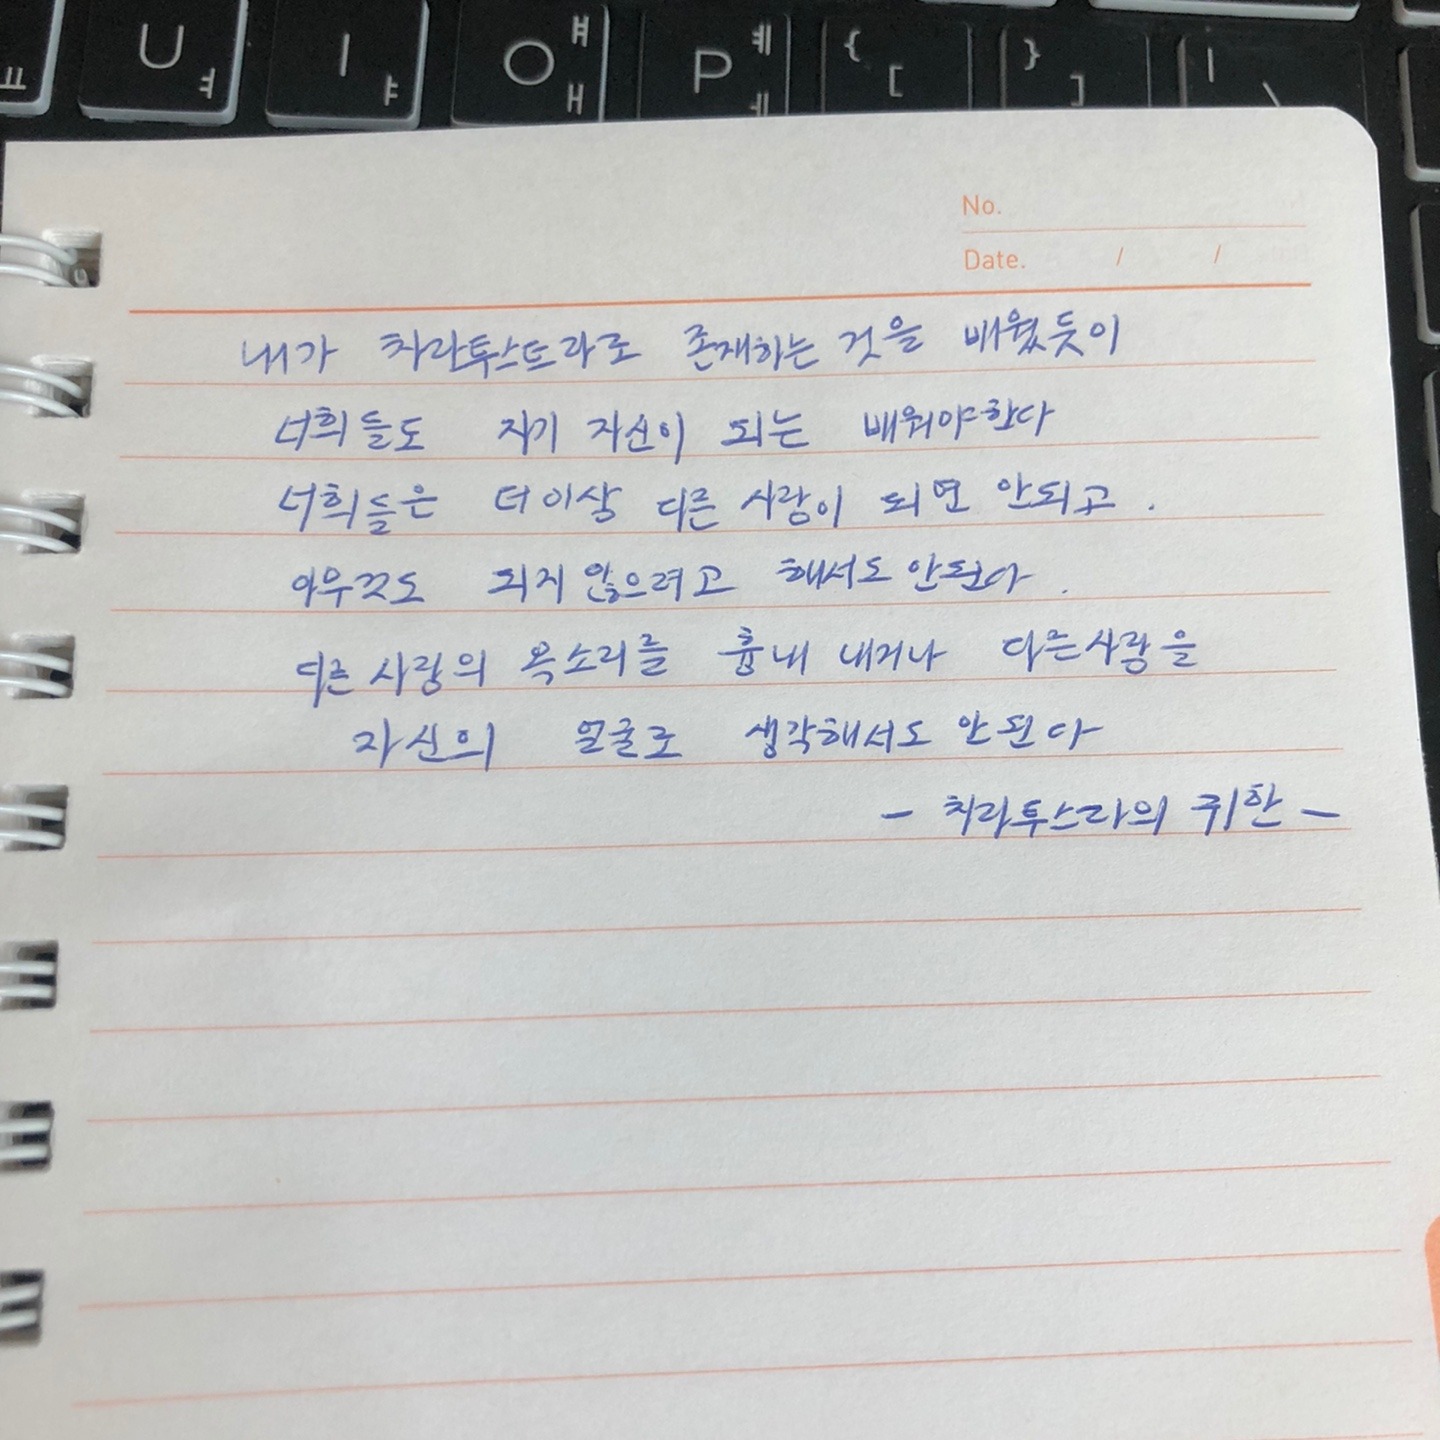 U ㅕ
I ㅑ
O ㅒ ㅐ
P ㅖ ㅔ
{ [
} ]
| \
ㅛ
No.
Date. / /
내가 차라투스트라로 존재하는 것을 배웠듯이
너희들도 자기 자신이 되는 배워야한다
너희들은 더이상 다른 사람이 되면 안되고.
아무것도 되지 않으려고 해서도 안된다.
다른 사람의 목소리를 흉내 내거나 다른사람을
자신의 얼굴로 생각해서도 안된다
- 차라투스라의 귀한 -